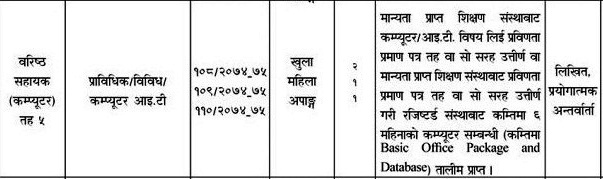 वरिष्ठ
सहायक
(कम्प्यूटर)
तह ५
प्राविधिक/विविध/
कम्प्यूटर आइ.टी
१०८/२०७४_७५
१०९/२०७४_७५
११०/२०७४_७५
खुला
महिला
अपाङ्ग
२
१
१
मान्यता प्राप्त शिक्षण संस्थावाट
कम्प्यूटर/आ.इ.टी. विषय लिई प्रविणता
प्रमाण पत्र तह वा सो सरह उत्तीर्ण वा
मान्यता प्राप्त शिक्षण संस्थावाट प्रविणता
प्रमाण पत्र तह वा सो सरह उत्तीर्ण
गरी रजिष्टर्ड संस्थावाट कम्तिमा ६
महिनाको कम्प्यूटर सम्बन्धी (कम्तिमा
Basic Office Package and
Database) तालीम प्राप्त ।
लिखित,
प्रयोगात्मक
अन्तर्वार्ता